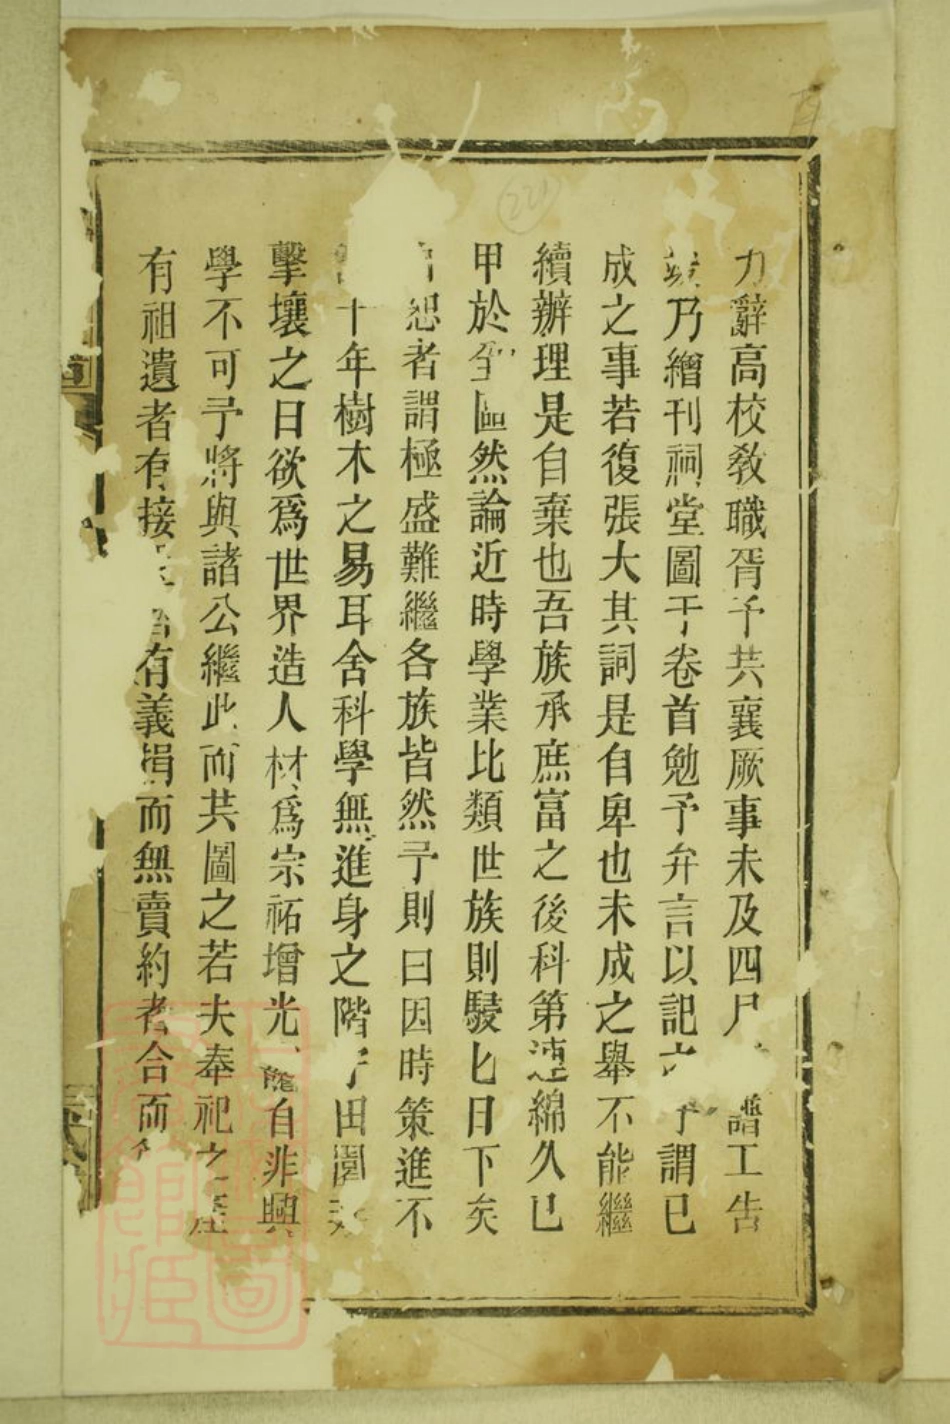 力辭高校敎職胥予共襄厥事未及四尸譜工告
乃繪刊祠堂圖于卷首勉予弁言以記予謂已
成之事若復張大其詞是自卑也未成之舉不能繼
續辦理是自棄也吾族承庶富之後科第連綿久已
甲於全區然論近時學業比類世族則駸匕日下矣
恕者謂極盛難繼各族皆然予則曰因時策進不
十年樹木之易耳舍科學無進身之階予田園
擊壤之日欲爲世界造人材爲宗祏增光龍自非興
學不可予將與諸公繼此而共圖之若夫奉祀之産
有祖遺者有接有義捐而無賣約者合而